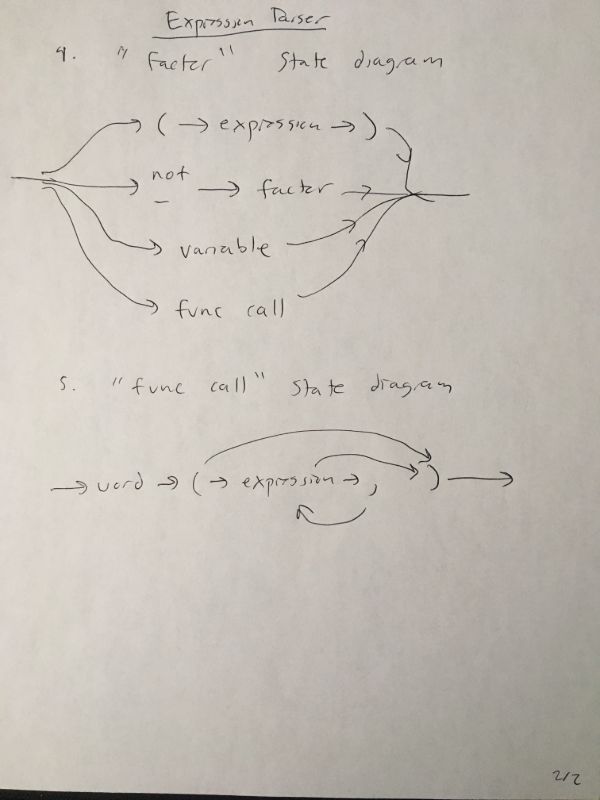 Expression Parser
4. "Factor" State diagram
( → expression → )
not
- → factor →
variable
func call
5. "func call" State diagram
→ word → ( → expression → , ) →
2/2